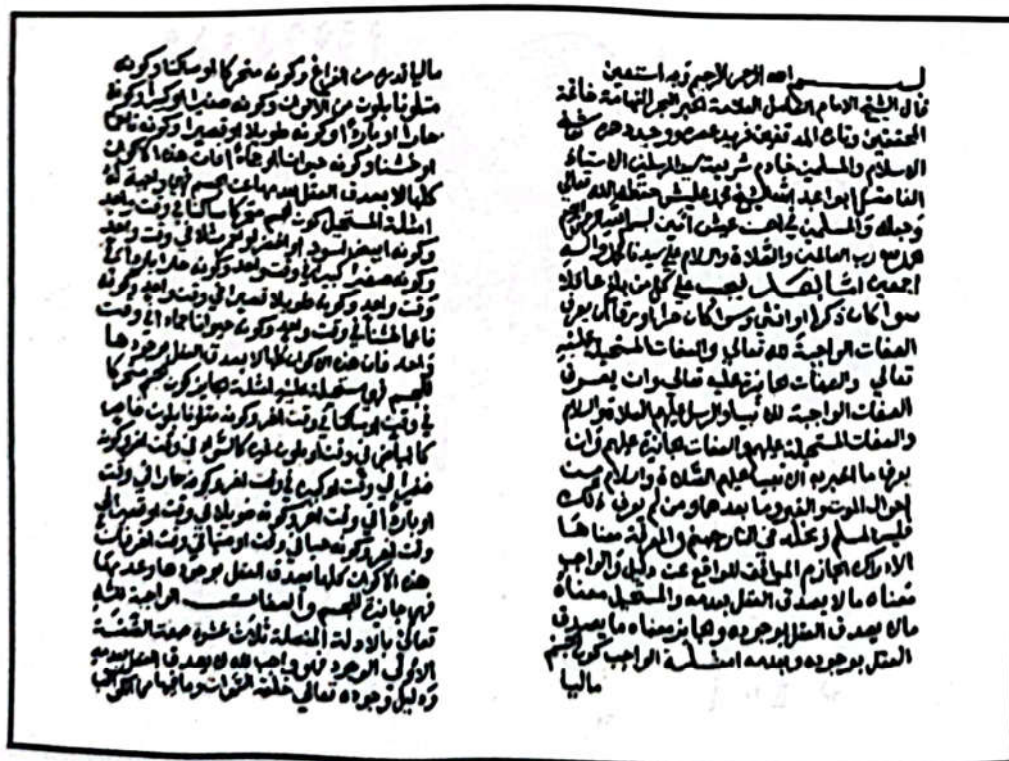 بسم الله الرحمن الرحيم وبه استعين
قال الشيخ الامام العلامة الحبر البحر الفهامة خاتمة
المحققين وتاج المدققين فريد عصره ووحيد دهره
الاسلام والمسلمين خادم شريعة سيد المرسلين الاستاذ
الفاضل ابو عبد الله الشيخ محمد عليش حفظه الله تعالى
وجعله والمسلمين في عيش آمين بسم الله الرحمن الرحيم
الحمد لله رب العالمين والصلاة والسلام على سيدنا محمد واله
اجمعين اما بعد فيجب على كل من بلغ عاقلا
سواء كان ذكرا او انثى وسواء كان حرا او رقيقا ان يعرف
الصفات الواجبة لله تعالى والصفات المستحيلة عليه
تعالى والصفات الجائزة عليه تعالى وان يعرف
الصفات الواجبة للانبياء والرسل عليهم الصلاة والسلام
والصفات المستحيلة عليهم والصفات الجائزة عليهم وان
يعرف ما اخبر به الانبياء عليهم الصلاة والسلام من
احوال الموت والقبر وما بعدهما ومن لم يعرف ذلك
فليس بمسلم ويخلد في النار جهنم والمعرفة معناها
الادراك الجازم الموافق للواقع عن دليل والواجب
معناه ما لا يصدق العقل بعدمه والمستحيل معناه
ما لا يصدق العقل بوجوده والجائز معناه ما يصدق
العقل بوجوده وبعدمه امثلة الواجب كون الجسم
ماليا
ماليا قدره من الفراغ وكونه متحركا او ساكنا وكونه
متلونا بلون من الالوان وكونه صغيرا او كبيرا وكونه
حارا او باردا وكونه طويلا او قصيرا وكونه ناعما
او خشنا وكونه حيوانا او جمادا فان هذه الاكوان
كلها لا يصدق العقل بعدمها عن الجسم فهي واجبة له
امثلة المستحيل كون الجسم متحركا ساكنا في وقت واحد
وكونه ابيض اسود او اخضر او احمر مثلا في وقت واحد
وكونه صغيرا كبيرا في وقت واحد وكونه حارا باردا في
وقت واحد وكونه طويلا قصيرا في وقت واحد وكونه
ناعما خشنا في وقت واحد وكونه حيوانا جمادا في وقت
واحد فان هذه الاكوان كلها لا يصدق العقل بوجودها
للجسم فهي مستحيلة عليه امثلة الجائز كون الجسم متحركا
في وقت او ساكنا في وقت اخر وكونه متلونا بلون خاص
كالبياض في وقت او بلون اخر كالسواد في وقت اخر وكونه
صغيرا في وقت او كبيرا في وقت اخر وكونه حارا في وقت
او باردا في وقت اخر وكونه طويلا في وقت او قصيرا في
وقت اخر وكونه حيا في وقت او ميتا في وقت اخر فان
هذه الاكوان كلها يصدق العقل بوجودها وعدمها
فهي جائزة للجسم والصفات الواجبة لله
تعالى بالادلة المفصلة ثلاث عشرة صفة الصفة
الاولى الوجود فهو واجب لله لا يصدق العقل بعدمه
ودليل وجوده تعالى خلقه السموات وما فيها من الكواكب